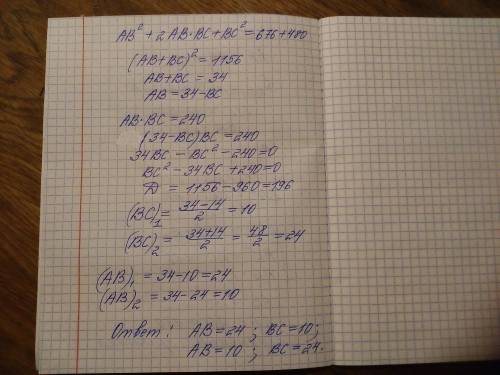 AB² + 2AB·BC + BC² = 676 + 480
(AB+BC)² = 1156
AB+BC = 34
AB = 34-BC
AB·BC = 240
(34-BC)BC = 240
34BC - BC² - 240 = 0
BC² - 34BC + 240 = 0
D = 1156 - 960 = 196
(BC)₁ = (34-14)/2 = 10
(BC)₂ = (34+14)/2 = 48/2 = 24
(AB)₁ = 34-10 = 24
(AB)₂ = 34-24 = 10
Ответ: AB = 24; BC = 10;
AB = 10; BC = 24.